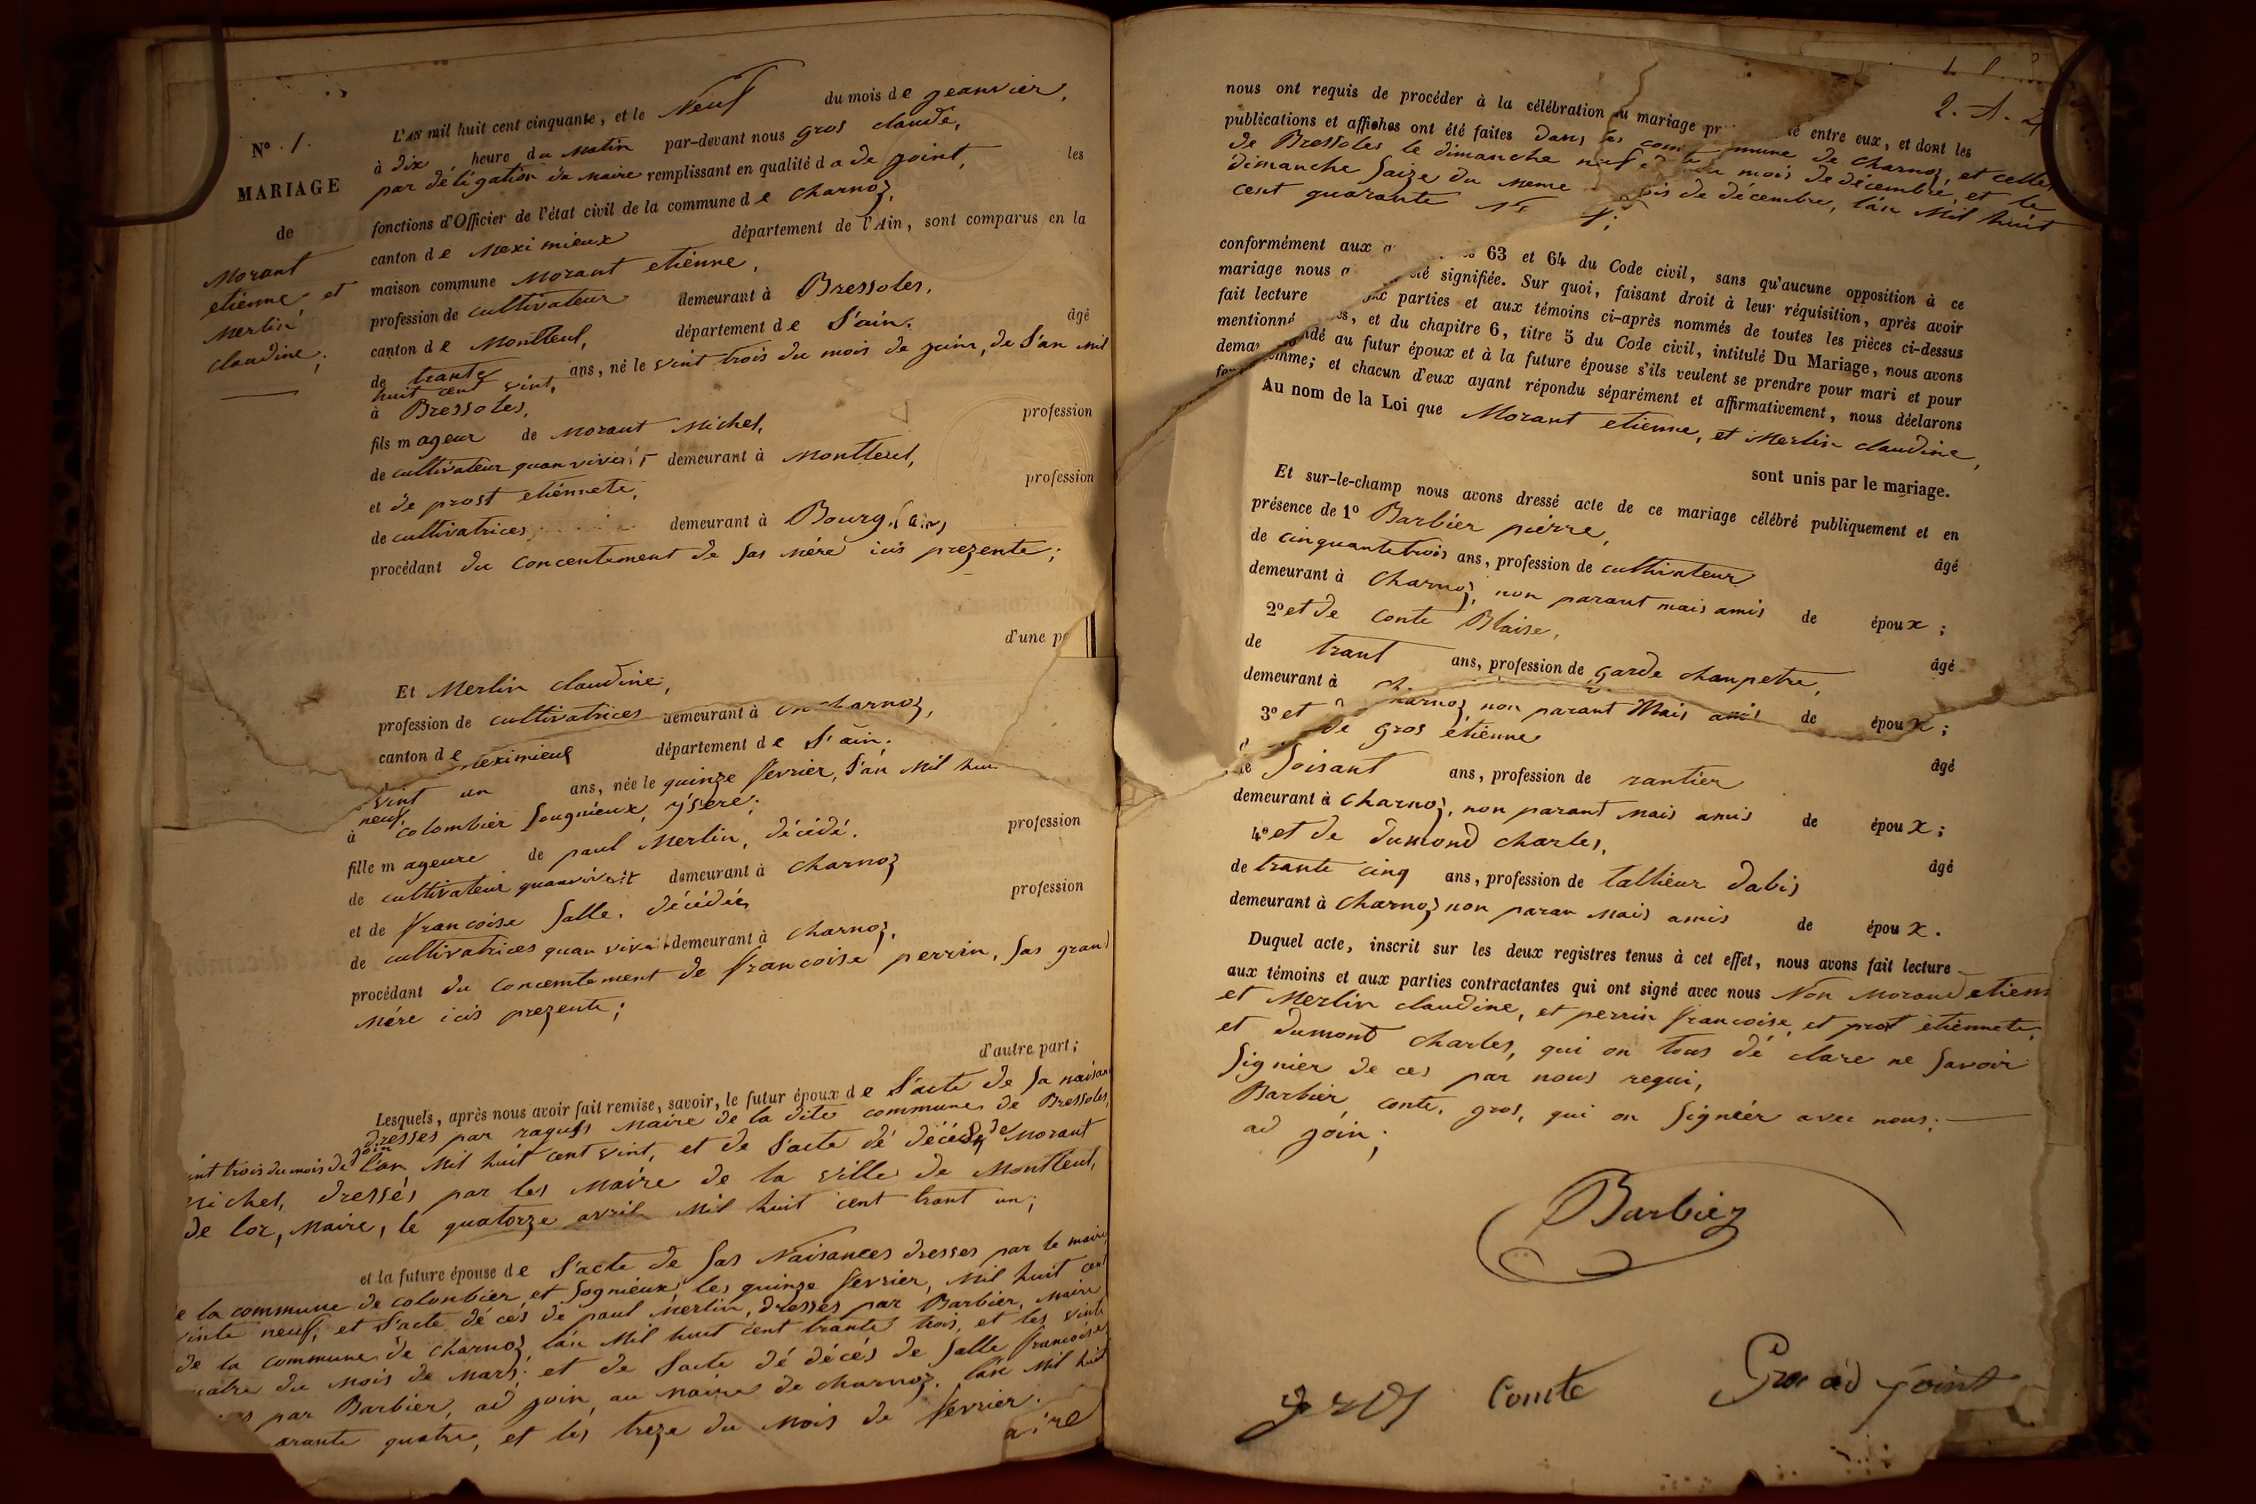 N° 1.
MARIAGE
de
Morant
etiénne et
Merlin
claudine,
L'AN mil huit cent cinquante, et le Neuf du mois de jeanvier,
à dix heure du Matin par-devant nous gros claude,
par déligation du Maire remplissant en qualité d a de joint, les
fonctions d'Officier de l'état civil de la commune de charnoz,
canton de Meximieux département de l'Ain, sont comparus en la
maison commune Morant etiénne,
profession de cultivateur demeurant à Bressoles,
canton de Montleul, département de l'ain. âgé
de trante ans, né le vint trois du mois de juin, de l'an mil
huit cent vint,
à Bressoles,
fils mageur de Morant Michel, profession
de cultivateur quan vivait demeurant à Montleul,
et de prost etiénnete, profession
de cultivatrices demeurant à Bourg, (ain)
procédant du concentement de sas mére icis prezente;
d'une p
Et Merlin claudine,
profession de cultivatrices demeurant à charnoz,
canton de Meximieux département de l'ain.
vint un ans, née le quinze fevrier, l'an Mil hui
neuf,
à colombier sougnieux, ysére,
fille mageure de paul Merlin, décédé. profession
de cultivateur quanvivait demeurant à charnoz
et de francoise Salle. décédée, profession
de cultivatrices quan vivait demeurant à charnoz,
procédant du concentement de francoise perrin, sas grand
Mére icis prezente;
d'autre part;
Lesquels, après nous avoir fait remise, savoir, le futur époux de l'acte de sa naisan
dresses par raquis Maire de la dite commune de Bressoles,
int trois du mois de join l'an Mil huit cent vint, et de l'acte dé décés de Morant
Michel, dressés par les Maire de la ville de Montleul,
de lor, Maire, le quatorze avril Mil huit cent trant un;
et la future épouse de l'acte de sas Naisances dresses par le maire
e la commune de colonbier et sognieux, les quinze fevrier, Mil huit cent
vinte neuf, et l'acte dé cés de paul Merlin, dressés par Barbier, Maire
de la commune de charnoz l'an Mil huit cent trante trois, et les vinte
quatre du mois de Mars; et de l'acte dé décés de Salle francoise
par Barbier, ad join, au Maire de charnoz. l'an Mil huit
arante quatre, et les treze du Mois de fevrier.
aire
2. A. 2
nous ont requis de procéder à la célébration du mariage pr té entre eux, et dont les
publications et affiches ont été faites dans les commune de charnoz, et celles
de Bressoles le dimanche neuf du mois de décembre, et le
dimanche saize du meme mois de décembre, l'an Mil huit
cent quarante
conformément aux 63 et 64 du Code civil, sans qu'aucune opposition à ce
mariage nous a été signifiée. Sur quoi, faisant droit à leur réquisition, après avoir
fait lecture aux parties et aux témoins ci-après nommés de toutes les pièces ci-dessus
mentionné es, et du chapitre 6, titre 5 du Code civil, intitulé Du Mariage, nous avons
demandé au futur époux et à la future épouse s'ils veulent se prendre pour mari et pour
femme; et chacun d'eux ayant répondu séparément et affirmativement, nous déclarons
Au nom de la Loi que Morant etienne, et Merlin claudine,
sont unis par le mariage.
Et sur-le-champ nous avons dressé acte de ce mariage célébré publiquement et en
présence de 1° Barbier piérre, âgé
de cinquantetrois ans, profession de cultivateur
demeurant à charnoz, non parant mais amis de époux;
2° et de conte Blaise, âgé
de trant ans, profession de garde champetre,
demeurant à charnoz, non parant Mais amis de époux;
3° et de gros etienne âgé
de soisant ans, profession de rantier
demeurant à charnoz, non parant Mais amis de époux;
4° et de dumond charles, âgé
de trante cinq ans, profession de tallieur dabis
demeurant à charnoz non paran Mais amis de époux.
Duquel acte, inscrit sur les deux registres tenus à cet effet, nous avons fait lecture
aux témoins et aux parties contractantes qui ont signé avec nous Non Morand etienn
et Merlin claudine, et perrin francoise, et prost etiénnete,
et dumond charles, qui on tous dé clare ne savoir
signier de ces par nous requi,
Barbier, conte, gros, qui on signéér avec nous;
ad join;
Barbier
Comte
Gros ad joint